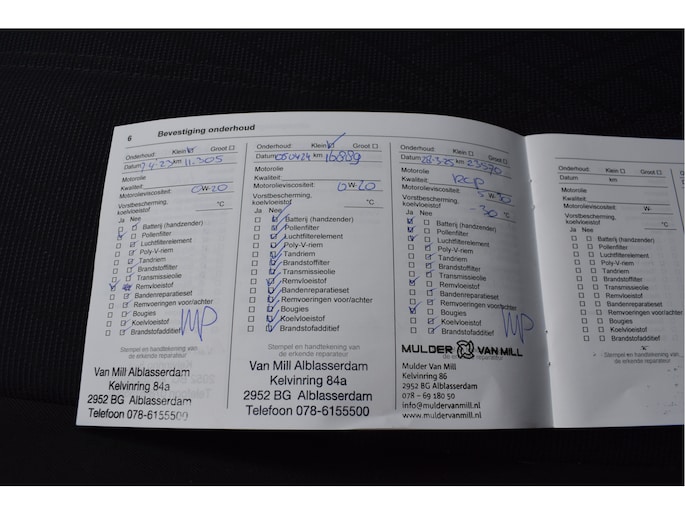 6 Bevestiging onderhoud
Onderhoud: Klein Groot
Datum 7.4.23 km 11.305
Motorolie
Kwaliteit:
Motorolieviscositeit: 0W-20
Vorstbescherming,
koelvloeistof °C
Ja Nee
Batterij (handzender)
Pollenfilter
Luchtfilterelement
Poly-V-riem
Tandriem
Brandstoffilter
Transmissieolie
Remvloeistof
Bandenreparatieset
Remvoeringen voor/achter
Bougies
Koelvloeistof
Brandstofadditief
MP
Stempel en handtekening van
de erkende reparateur
Van Mill Alblasserdam
Kelvinring 84a
2952 BG Alblasserdam
Telefoon 078-6155500
Onderhoud: Klein Groot
Datum 050424 km 16889
Motorolie
Kwaliteit:
Motorolieviscositeit: 0W-20
Vorstbescherming,
koelvloeistof °C
Ja Nee
Batterij (handzender)
Pollenfilter
Luchtfilterelement
Poly-V-riem
Tandriem
Brandstoffilter
Transmissieolie
Remvloeistof
Bandenreparatieset
Remvoeringen voor/achter
Bougies
Koelvloeistof
Brandstofadditief
Stempel en handtekening van
de erkende reparateur
Van Mill Alblasserdam
Kelvinring 84a
2952 BG Alblasserdam
Telefoon 078-6155500
Onderhoud: Klein Groot
Datum 28-3-25 km
Motorolie
Kwaliteit:
Motorolieviscositeit: 5W-30
Vorstbescherming,
koelvloeistof -30 °C
Ja Nee
Batterij (handzender)
Pollenfilter
Luchtfilterelement
Poly-V-riem
Tandriem
Brandstoffilter
Transmissieolie
Remvloeistof
Bandenreparatieset
Remvoeringen voor/achter
Bougies
Koelvloeistof
Brandstofadditief
MP
MULDER VAN MILL
Mulder Van Mill
Kelvinring 86
2952 BG Alblasserdam
078 - 69 180 50
info@muldervanmill.nl
www.muldervanmill.nl
Onderhoud: Klein Groot
Datum km
Motorolie
Kwaliteit:
Motorolieviscositeit: W-
Vorstbescherming,
koelvloeistof °C
Ja Nee
Batterij (handzender)
Pollenfilter
Luchtfilterelement
Poly-V-riem
Tandriem
Brandstoffilter
Transmissieolie
Remvloeistof
Bandenreparatieset
Remvoeringen voor/achter
Bougies
Koelvloeistof
Brandstofadditief
Stempel en handtekening van
de erkende reparateur